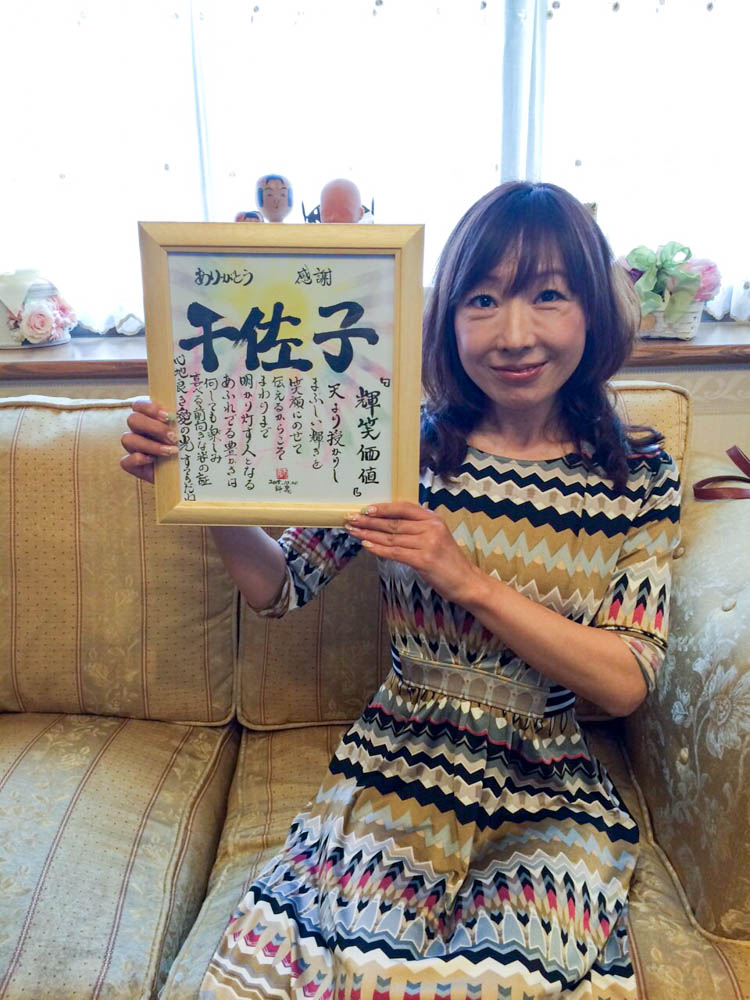 ありがとう 感謝
千佐子
『輝笑価値』
天より授かりし
まぶしい輝きを
笑顔にのせて
伝えるからこそ
まわりまで
明かり灯す人となる
あふれでる豊かさは
何しても楽しみ
喜べる前向きな
心地良き愛の光